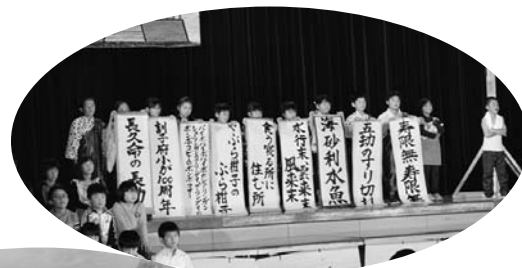 寿限無寿限無
五劫のすり切れ
海砂利水魚
水行末雲来末
風来末
食う寝る所に
住む所
やぶら柑子の
ぶら柑子
訓子府小が100周年
長久命の長助